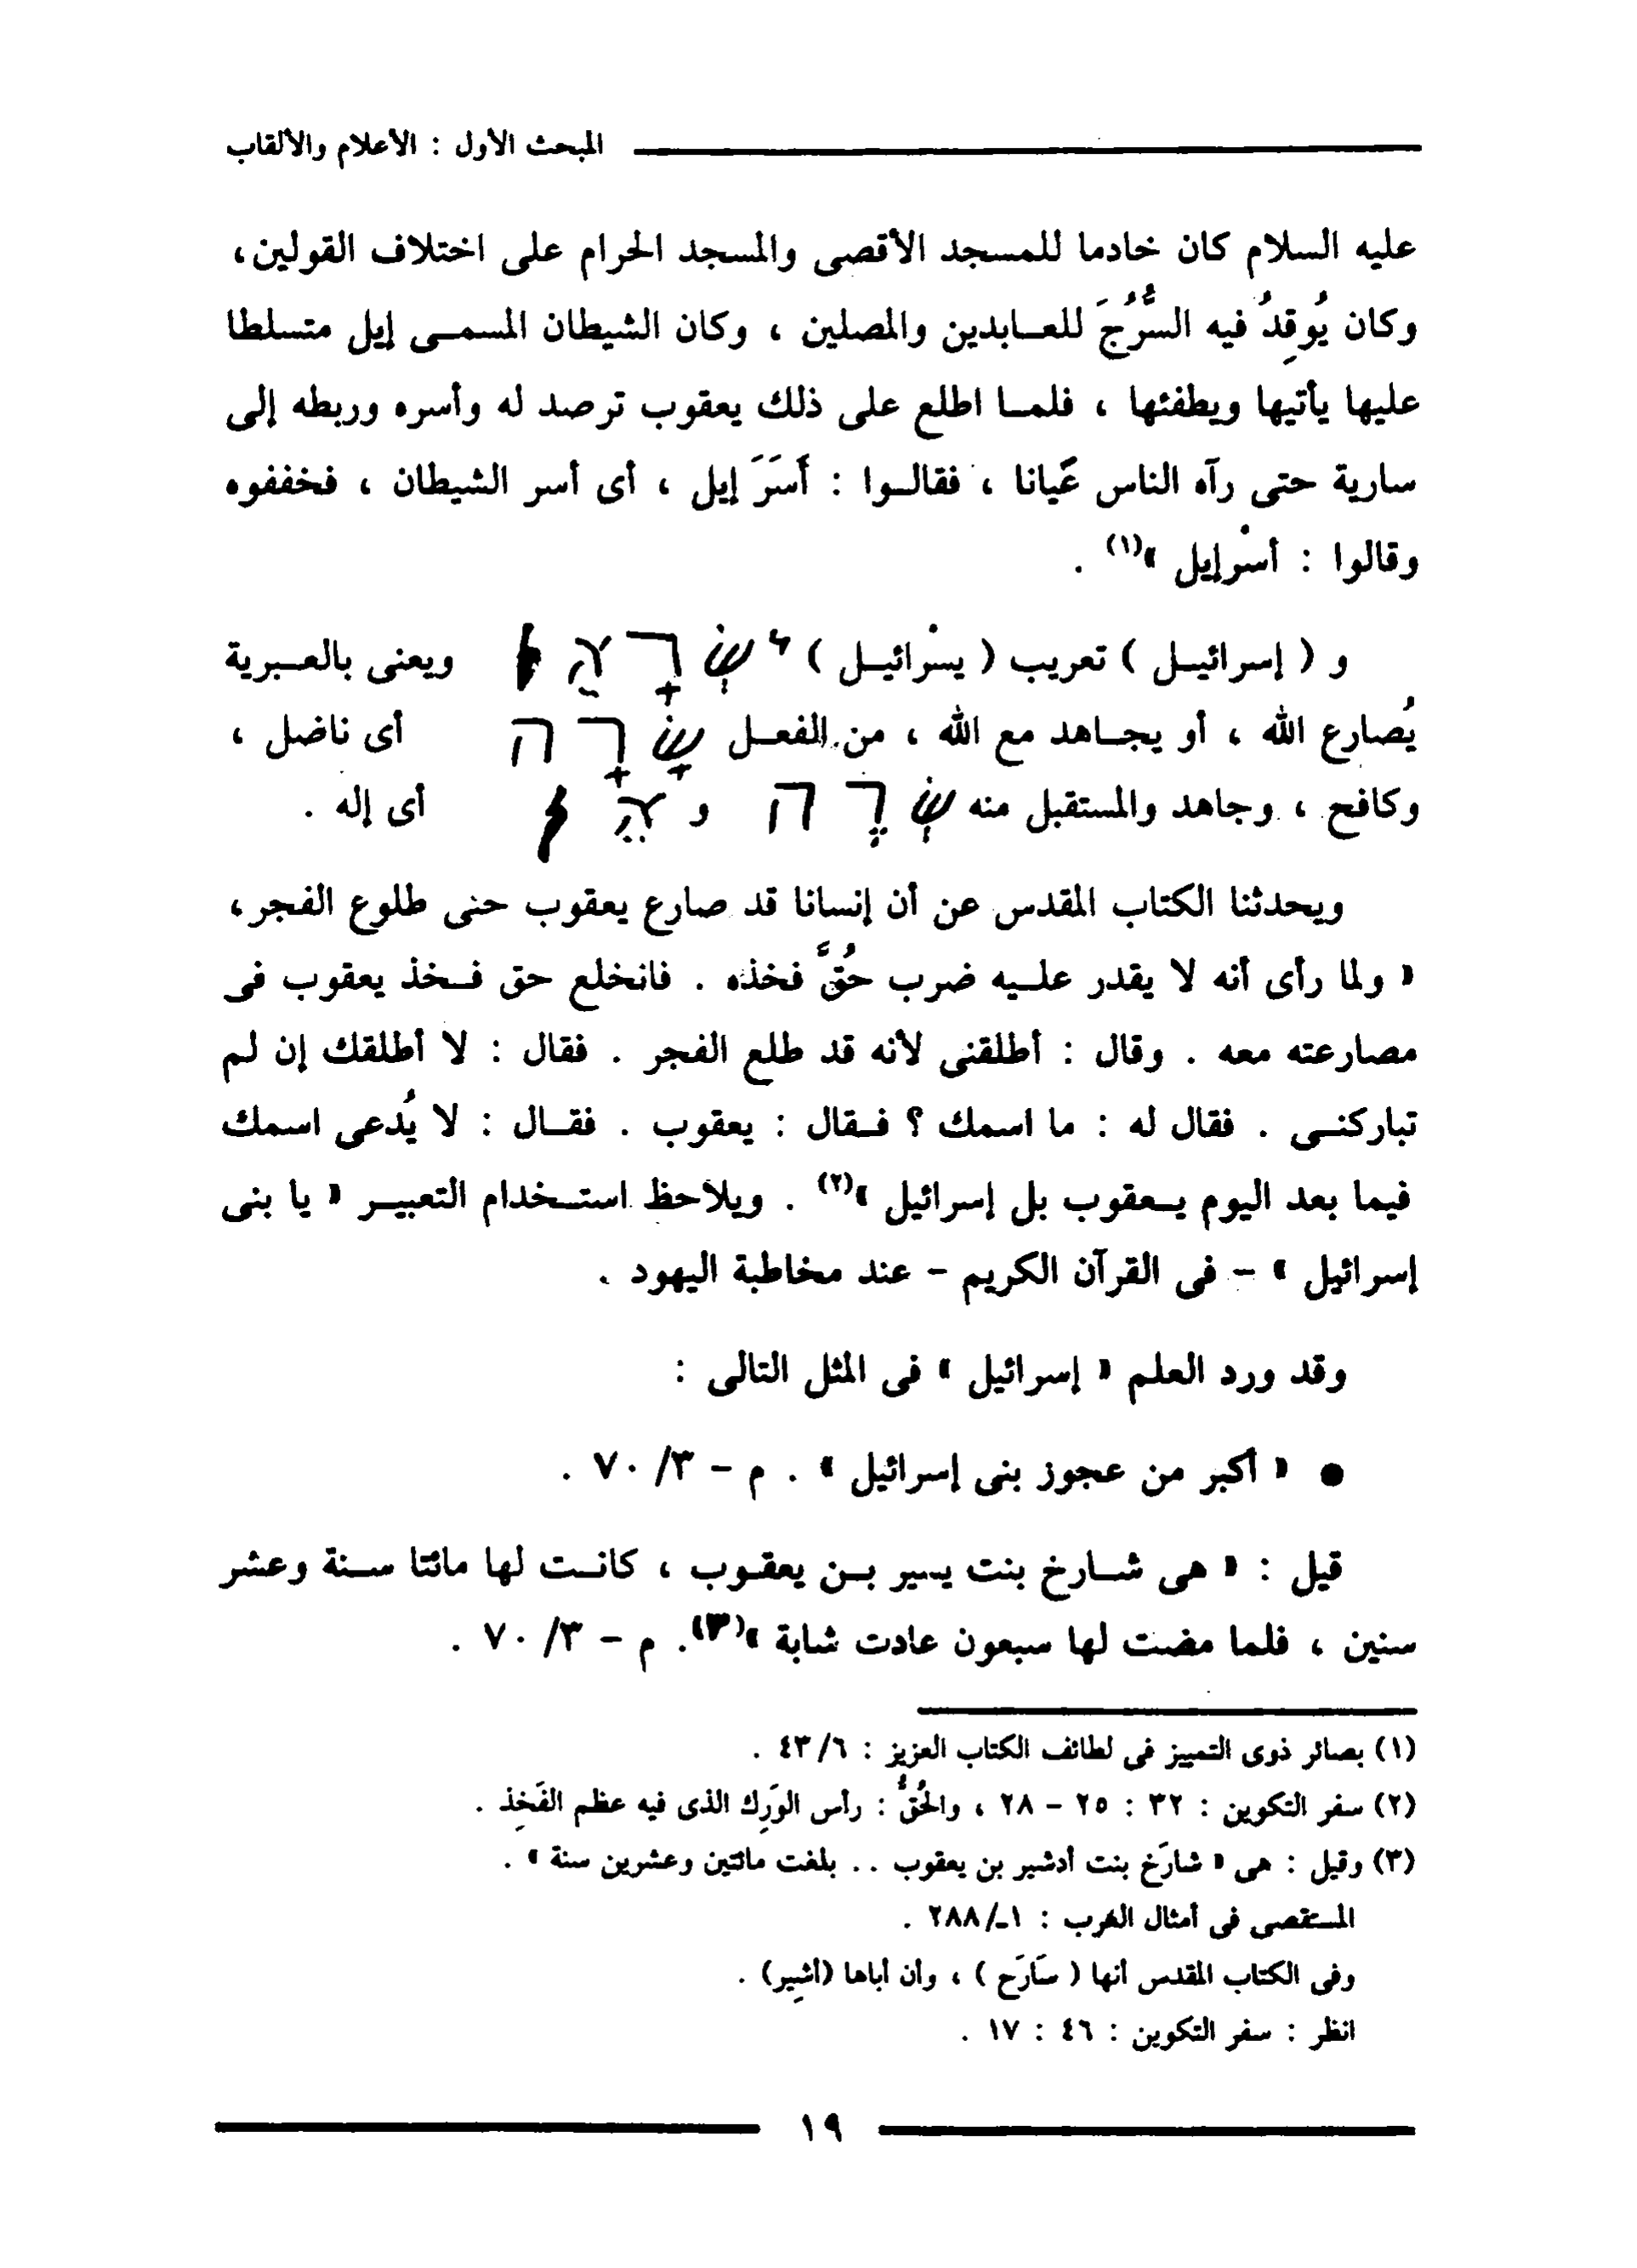 المبحث الأول : الأعلام والألقاب
عليه السلام كان خادما للمسجد الأقصى والمسجد الحرام على اختلاف القولين،
وكان يُوقِدُ فيه السُّرُجَ للعابدين والمصلين ، وكان الشيطان المسمى إيل متسلطا
عليها يأتيها ويطفئها ، فلما اطلع على ذلك يعقوب ترصد له وأسره وربطه إلى
سارية حتى رآه الناس عَيانا ، فقالوا : أَسَرَ إيل ، أى أسر الشيطان ، فخففوه
وقالوا : أسْرإيل »(١) .
و ( إسرائيل ) تعريب ( يسْرائيل ) ישׂרָאֵל ويعنى بالعبرية
يُصارع الله ، أو يجاهد مع الله ، من الفعل שָׂרָה أى ناضل ،
وكافح ، وجاهد والمستقبل منه יִשְׂרֶה و אֵל أى إله .
ويحدثنا الكتاب المقدس عن أن إنسانا قد صارع يعقوب حتى طلوع الفجر،
« ولما رأى أنه لا يقدر عليه ضرب حُقَّ فخذه . فانخلع حق فخذ يعقوب فى
مصارعته معه . وقال : أطلقنى لأنه قد طلع الفجر . فقال : لا أطلقك إن لم
تباركنى . فقال له : ما اسمك ؟ فقال : يعقوب . فقال : لا يُدعى اسمك
فيما بعد اليوم يعقوب بل إسرائيل »(٢) . ويلاحظ استخدام التعبير « يا بنى
إسرائيل » – فى القرآن الكريم – عند مخاطبة اليهود .
وقد ورد العلم « إسرائيل » فى المثل التالى :
● « أكبر من عجوز بنى إسرائيل » . م – ٣/ ٧٠ .
قيل : « هى شارخ بنت يسير بن يعقوب ، كانت لها مائتا سنة وعشر
سنين ، فلما مضت لها سبعون عادت شابة »(٣). م – ٣/ ٧٠ .
(١) بصائر ذوى التمييز فى لطائف الكتاب العزيز : ٦/ ٤٣ .
(٢) سفر التكوين : ٣٢ : ٢٥ – ٢٨ ، والحُقُّ : رأس الوَرِك الذى فيه عظم الفَخِذ .
(٣) وقيل : هى « شارَخ بنت أدشير بن يعقوب .. بلغت مائتين وعشرين سنة » .
المستقصى فى أمثال العرب : ١ـ/ ٢٨٨ .
وفى الكتاب المقدس أنها ( سَارَح ) ، وأن أباها (أشِير) .
انظر : سفر التكوين : ٤٦ : ١٧ .
١٩